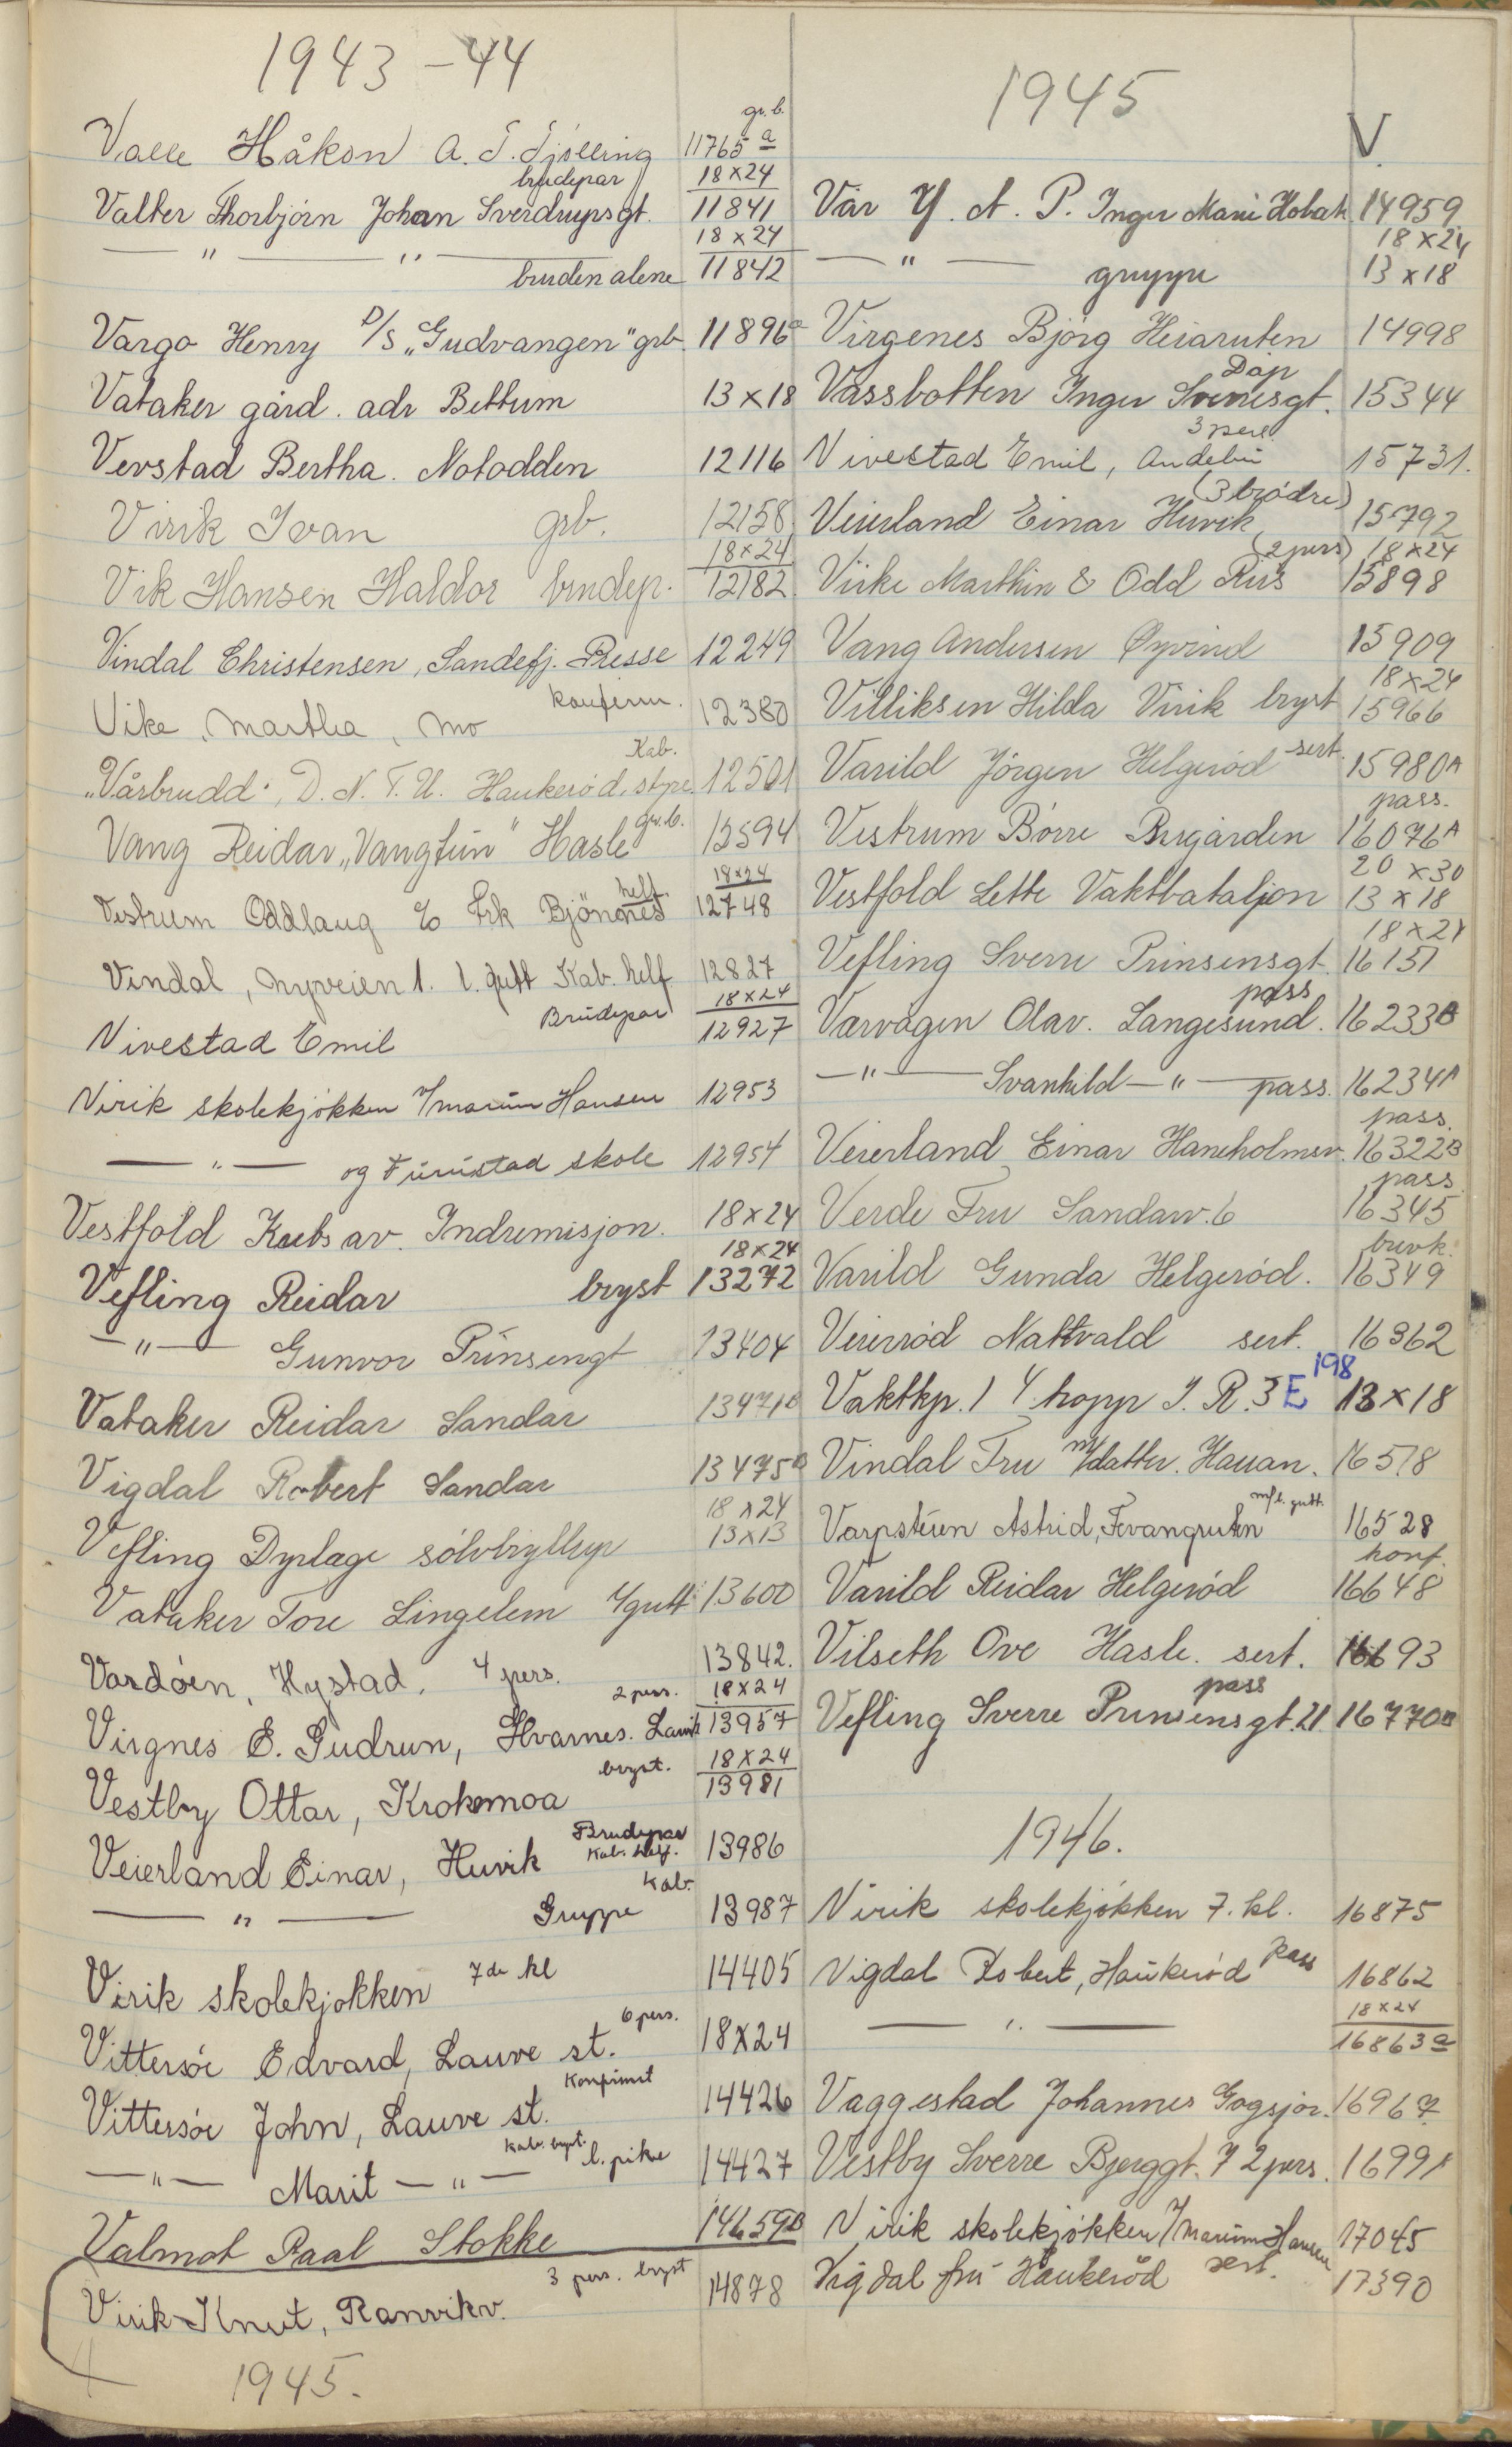 1943 - 44
Valle Håkon A. S. Tjølling gr. b. 11765 a
Valter Thorbjørn Johan Sverdrupsgt. brudepar 18x24 11841
— " — " — bruden alene 18x24 11842
Vargo Henry D/S "Gudvangen" grb. 11896a
Vataker gård. adr Bettum 13x18
Verstad Bertha. Notodden 12116
Virik Ivan grb. 12158
Vik Hansen Haldor brudep. 18x24 12182
Vindal Christensen, Sandefj. Presse 12249
Vike, Martha, Mo konferm. 12380
"Vårbrudd", D. N. T. U. Haukerød, st.pr. Kab. 12501
Vang Reidar "Vangtun" Hasle gr.b. 12594
Vestrum Oddlaug c/o Frk Bjønnes helf. 18x24 12748
Vindal, Nyveien 1. l. gutt Kab. helf 12827
Nivestad Emil Brudepar 18x24 12927
Virik skolekjøkken v/Marum Hansen 12953
— " — og Furustad skole 12954
Vestfold Krets av. Indremisjon. 18x24
Vefling Reidar bryst 18x24 13272
— " — Gunvor Prinsengt 13404
Vataker Reidar Sandar 13471B
Vigdal Robert Sandar 13475B
Vefling Dyrlæge sølvbryllup 18x24 13x13
Vataker Tore Lingelem 1/gutt 13600
Vardøen, Hystad. 4 pers. 13842.
Virgnes E. Gudrun, Hvarnes. Larvik 2 pers. 18x24 13957
Vestby Ottar, Krokemoa bryst. 18x24 13981
Veierland Einar, Huvik Brudepar Kab. helf. 13986
— " — Gruppe Kab. 13987
Virik skolekjøkken 7de kl 14405
Vittersøe Edvard, Lauve st. 6 pers. 18x24
Vittersøe John, Lauve st. Konfirmt 14426
— " — Marit — " — Kab. bryst. l. pike 14427
Valmot Paal Stokke 14659B
Virik Knut, Ranvikv. 3 pers. bryst 14878
1945.
1945
V.
Vår Y. A. P. Inger Marie Hobæk 14959
— " — gruppe 18x24 13x18
Virgenes Bjørg Heiaruten 14998
Vassbotten Inger Svenesgt. Dåp 15344
Nivestad Emil, Andebu 3 pers. 15731.
Veierland Einar Huvik (3 brødre) 15792
Virke Marthin & Odd Riis (2 pers) 18x24 15898
Vang Andersen Øyvind 15909
Villiksen Hilda Virik bryst 18x24 15966
Varild Jørgen Helgerød sert. 15980A
Vestrum Børre Bugården pass. 16076A
Vestfold Lette Vaktbataljon 20x30 13x18
Vefling Sverre Prinsensgt. 18x24 16151
Værvågen Olav. Langesund. pass 16233B
— " — Svanhild — " — pass. 16234A
Veierland Einar Haneholmsv. pass. 16322B
Verde Fru Sandarv. 6 pass 16345
Varild Gunda Helgerød. brevk. 16349
Veierød Nattvald sert. 16362
Vaktkp. 1 4. hopp I. R. 3 E 198 13x18
Vindal Fru m/datter. Hauan. 16518
Varpsteien Astrid, Fevangruten m/l. gutt. 16528
Varild Reidar Helgerød konf. 16648
Vilseth Ove Hasle. sert. 16693
Vefling Sverre Prinsensgt. 21 pass 16770B
1946.
Virik skolekjøkken 7. kl. 16875
Vigdal Robert, Haukerød pass 16862
— " — 18x24 16863a
Vaggestad Johannes Gogsjø. 16967
Vestby Sverre Bjerggt. 7 2 pers. 1699A
Virik skolekjøkken v/Marum Hansen 17045
Vigdal fru Haukerød sert. 17390